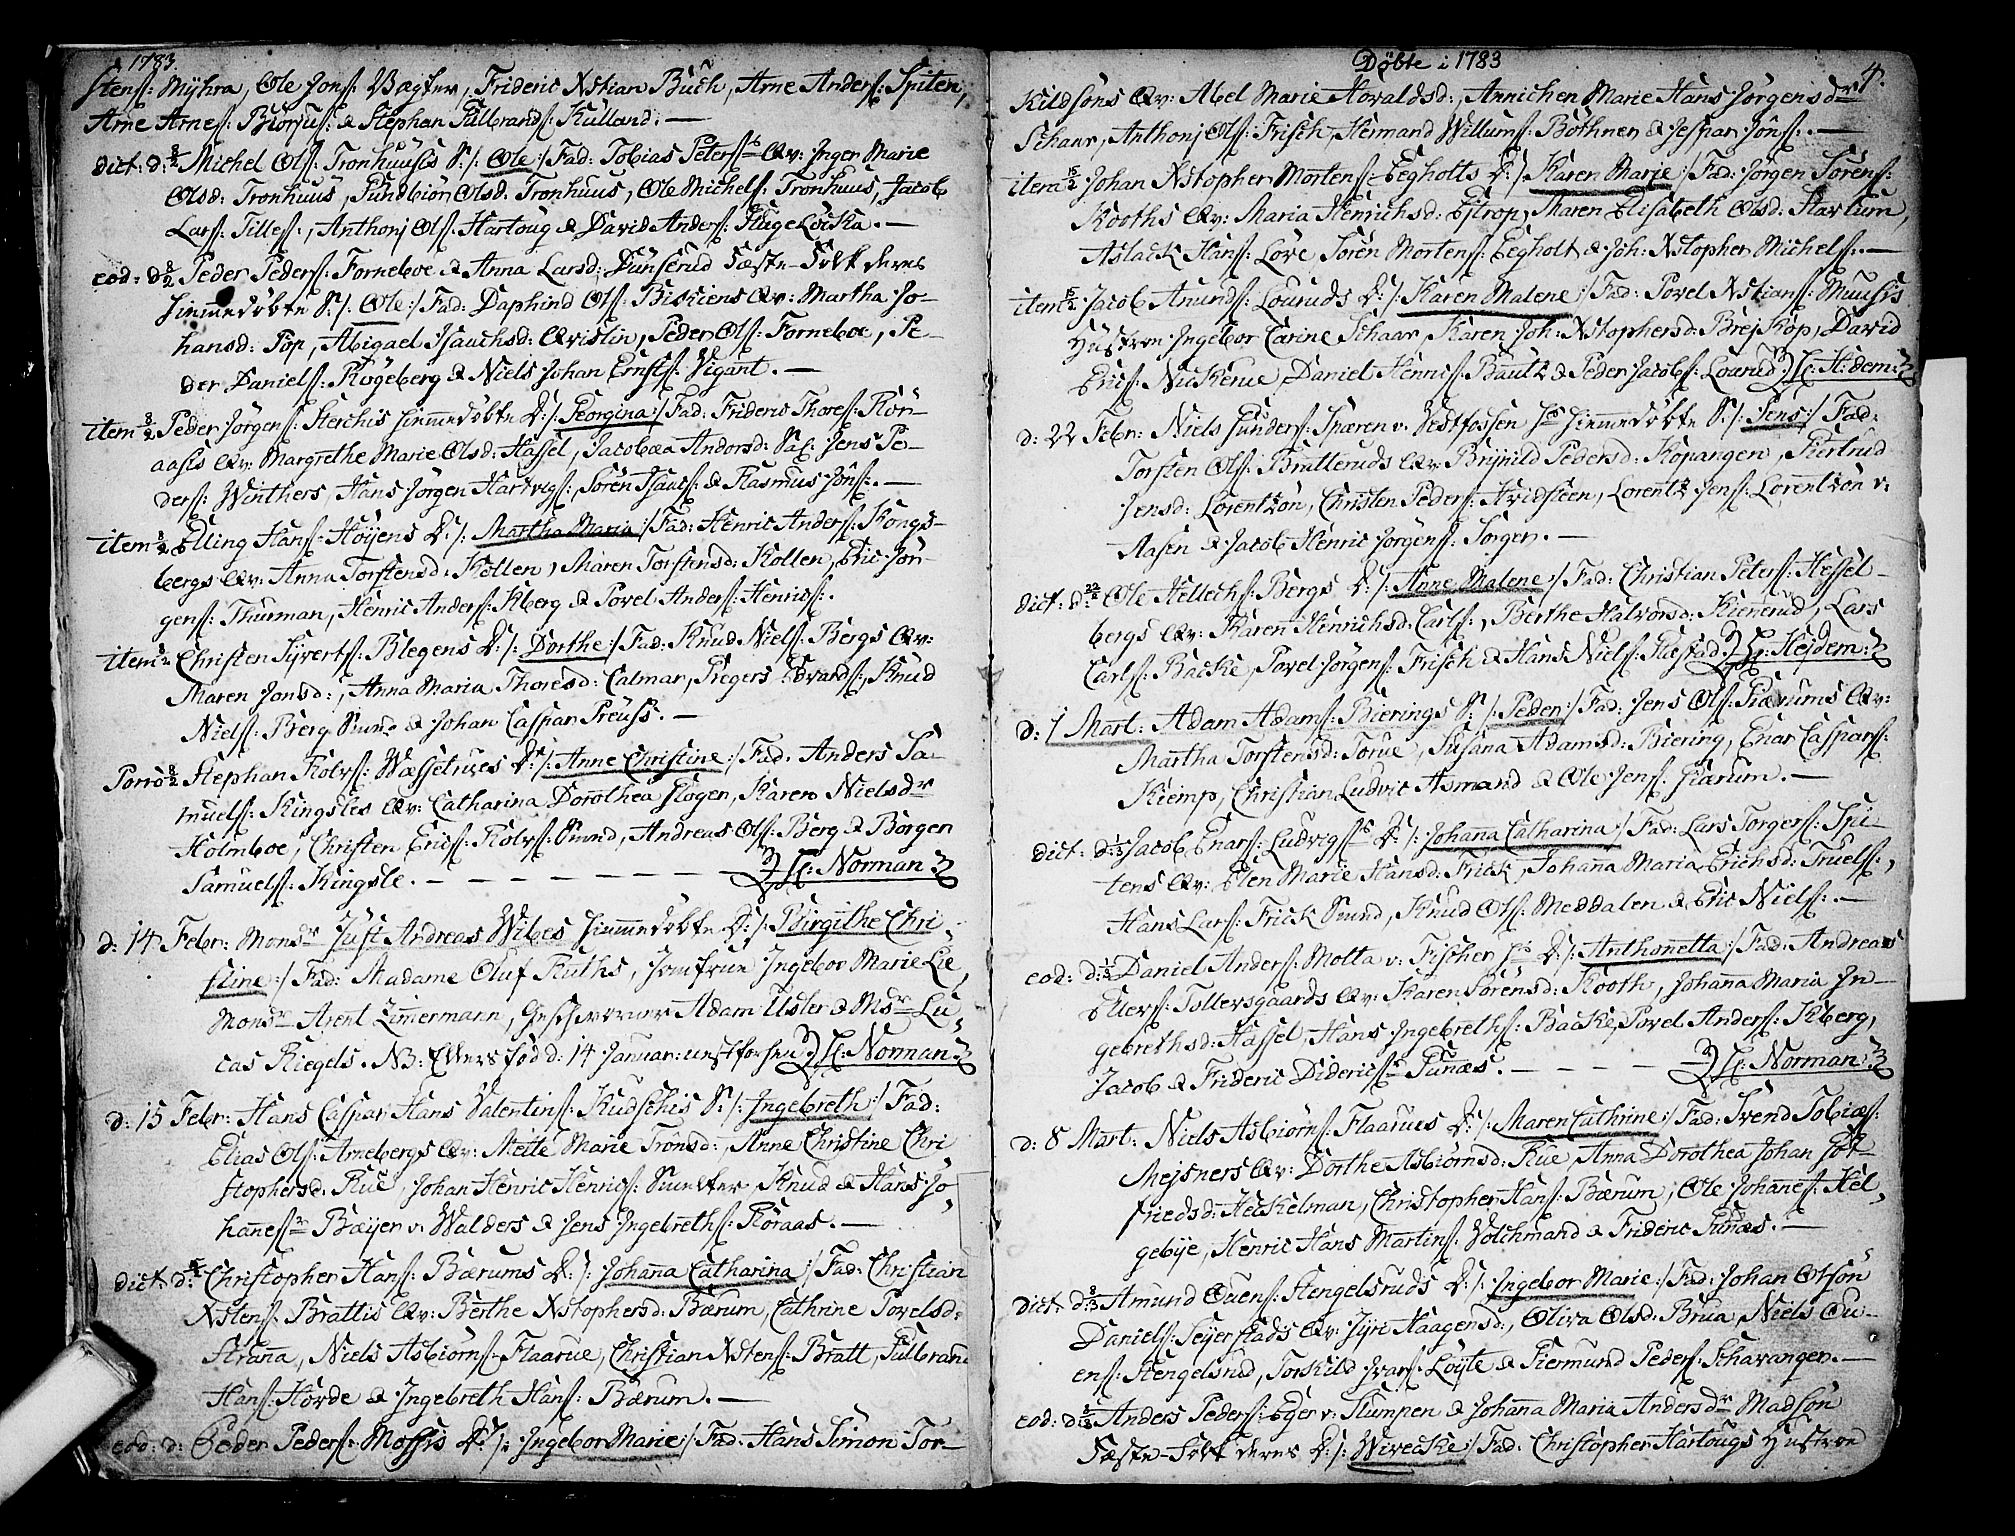 1783.
Stens: Myhra, Ole Jons: Vægter, Frideric Xstian Buch, Arne Anders: Spiten,
Arne Arnes: Biørjus: & Stephan Gulbrands: Kulland: —
dict: d: 8/2 Michel Ols: Tronhuusis S: /: Ole :/ Fad: Tobias Peters: Qv: Inger Marie
Olsd: Tronhuus, Gundbiør Olsd: Tronhuus, Ole Michels: Tronhuus, Jacob
Lars: Tilles:, Anthonj Ols: Hartoug & David Anders: Flugeløcka. —
eod: d 8/2 Peder Peders: Forneboe & Anna Larsd: Dunserud Fæste-Folk deres
hiemmedøbte S: /: Ole :/ Fad: Daphind Ols: Biskiens Qv: Martha Jo-
hansd: Pop, Abigael Isachsd: Qvistin, Peder Ols: Forneboe, Pe-
der Daniels: Røgeberg & Niels Johan Ernsts: Vigant. —
item 8/2 Peder Jørgens: Sterchis hiemmedøbte D: /: Georgina :/ Fad: Frideric Thores: Kor-
aasis Qv: Margrethe Marie Olsd: Hassel, Jacobæa Andorsd: Sal: Jens Pe-
ders: Winthers, Hans Jørgen Hartvigs:, Søren Isacs: & Rasmus Jøns: —
item 8/2 Elling Hans: Høyens D: /: Martha Maria :/ Fad: Henric Anders: Kongs-
bergs Qv: Anna Torstensd: Kollen, Maren Torstensd: Kollen, Eric Jør-
gens: Thurman, Henric Anders: Kberg & Povel Anders: Henrics:.
item 8/2 Christen Sjverts: Blegens D: /: Dorthe :/ Fad: Knud Niels: Bergs Qv:
Maren Jonsd:, Anna Maria Thoresd: Calmar, Gregers Edvards:, Knud
Niels: Berg Smed & Johan Caspar Preuss. —
Porrò 8/2 Stephan Rolvs: Wæsselrues D: /: Anne Christine :/ Fad: Anders Sa-
muels: Kingsles Qv: Catharina Dorothea Flogen, Karen Nielsdr
Holmboe, Christen Erics: Rolvs: Smed, Andreas Ols: Berg & Børgen
Samuels: Kingsle. — — — — — — H: Norman
d: 14 Febr: Monsr Just Andreas Wibes hiemmedøbte D: /: Birgithe Chri-
stine :/ Fad: Madame Oluf Ruths, Jomfrue Ingebor Marie Lie,
Monsr Arent Zimermann, Geschworner Adam Usler & Msr Lu-
cas Riegels. NB: Ellers fød d: 14 Januar: H: Norman
d: 15 Febr: Hans Caspar Hans Valentins: Kudschis S: /: Ingebreth :/ Fad:
Elias Ols: Arnebergs Qv: Mette Marie Trønsd:, Anne Christine Chri-
stophersd: Rue, Johan Henric Henrics: Smelter, Knud & Hans Jo-
hanes: Bæyer v: Walders & Jens Ingebreths: Røraas. —
dict: d: 15/2 Christopher Hans: Bærums D: /: Johana Catharina :/ Fad: Christian
Xstens: Brattis Qv: Berthe Xstophersd: Bærum, Cathrine Povelsd:
Strana, Niels Asbiørns: Flaarue, Christian Xstens: Bratt, Gulbrand
Hans: Hørde & Ingebreth Hans: Bærum. —
eod: d: Peder Peders: Mossis D: /: Ingebor Marie :/ Fad: Hans Simon Tor-
Døbte i 1783
4.
Kildsøns Qv: Abel Marie Hovaldsd:, Annichen Marie Hans Jørgensdr
Schaar, Anthonj Ols: Frisch, Hermand Willums: Bøthner & Jespar Jøns:. —
item 15/2 Johan Xstopher Mortens: Eegholts D: /: Karen Marie :/ Fad: Jørgen Sørens:
Kooths Qv: Maria Henrichsd: Estrop, Maren Elisabeth Olsd: Hartum,
Aslack Hans: Løve, Søren Mortens: Eegholt & Joh: Xstopher Michels:. —
item 15/2 Jacob Anunds: Louruds D: /: Karen Malene :/ Fad: Povel Xstians: Muusis
Hustroe Ingebor Carine Schaar, Karen Joh: Xstophersd: Brejskop, David
Erics: Nuckerue, Daniel Henrics: Bautz & Peder Jacobs: Lourud H: Hidem:
d: 22 Febr: Niels Gunders: Spæren v: Vestfossen hs hiemmedøbte S: /: Jens :/ Fad:
Torsten Ols: Brutteruds Qv: Brynild Pedersd: Kopangen, Giertrud
Jensd: Lorentzøn, Christen Peders: Hvidsteen, Lorentz Jens: Lorentzøn v:
Aasen & Jacob Henric Jørgens: Sørgen. —
dict: d: 22/2 Ole Helleths: Bergs D: /: Anne Malene :/ Fad: Christian Peters: Hessel-
bergs Qv: Karen Hinrichsd: Carls:, Berthe Halvorsd: Kiennerud, Lars
Carls: Backe, Povel Jørgens: Frisch & Hans Niels: Flæstad H: Hejdem:
d: 1 Mart: Adam Adams: Bierings S: /: Peder :/ Fad: Jens Ols: Giærums Qv:
Martha Torstensd: Torue, Susana Adamsd: Biering, Enar Caspars:
Kiemp, Christian Ludvic Asmand & Ole Jens: Giærum. —
dict: d: 1/3 Jacob Enars: Ludvigss D: /: Johana Catharina :/ Fad: Lars Torgers: Spi-
tens Qv: Elen Marie Hansd: Frick, Johana Maria Erichsd: Truels:,
Hans Lars: Frick Smed, Knud Ols: Meddalen & Eric Niels:. —
eod: d: 1/3 Daniel Anders: Molta v: Fischer hs D: /: Anthonetta :/ Fad: Andreas
Ellers: Tollersgaards Qv: Karen Sørensd: Kooth, Johana Maria In-
gebrethsd: Hassel, Hans Ingebreths: Backe, Povel Anders: Kberg,
Jacob & Frideric Didericss Funæs. — — — H: Norman:
d: 8 Mart: Niels Asbiørns: Flaarues D: /: Maren Cathrine :/ Fad: Svend Tobias:
Mejsners Qv: Dorthe Asbiørnsd: Rue, Anna Dorothea Johan Got-
friedsd: Heckelman, Christopher Hans: Bærum, Ole Johanes: Hel-
gebye, Henric Hans Martins: Volchmand & Frideric Funæs. —
dict: d: 8/3 Amund Ouens: Stengelsruds D: /: Ingebor Marie :/ Fad: Johan Otsøn
Daniels: Sejerstads Qv: Siri Haagensd:, Oliva Olsd: Brua, Niels Ou-
ens: Stengelsrud, Torkild Ivars: Løyte & Giermund Peders: Schavangen. —
eod: d: 8/3 Anders Peders: Eger v: Stumpen & Johana Maria Andersdr Madsøn
Fæste-Folk deres D: /: Wivecke :/ Fad: Christopher Hartougs Hustroe